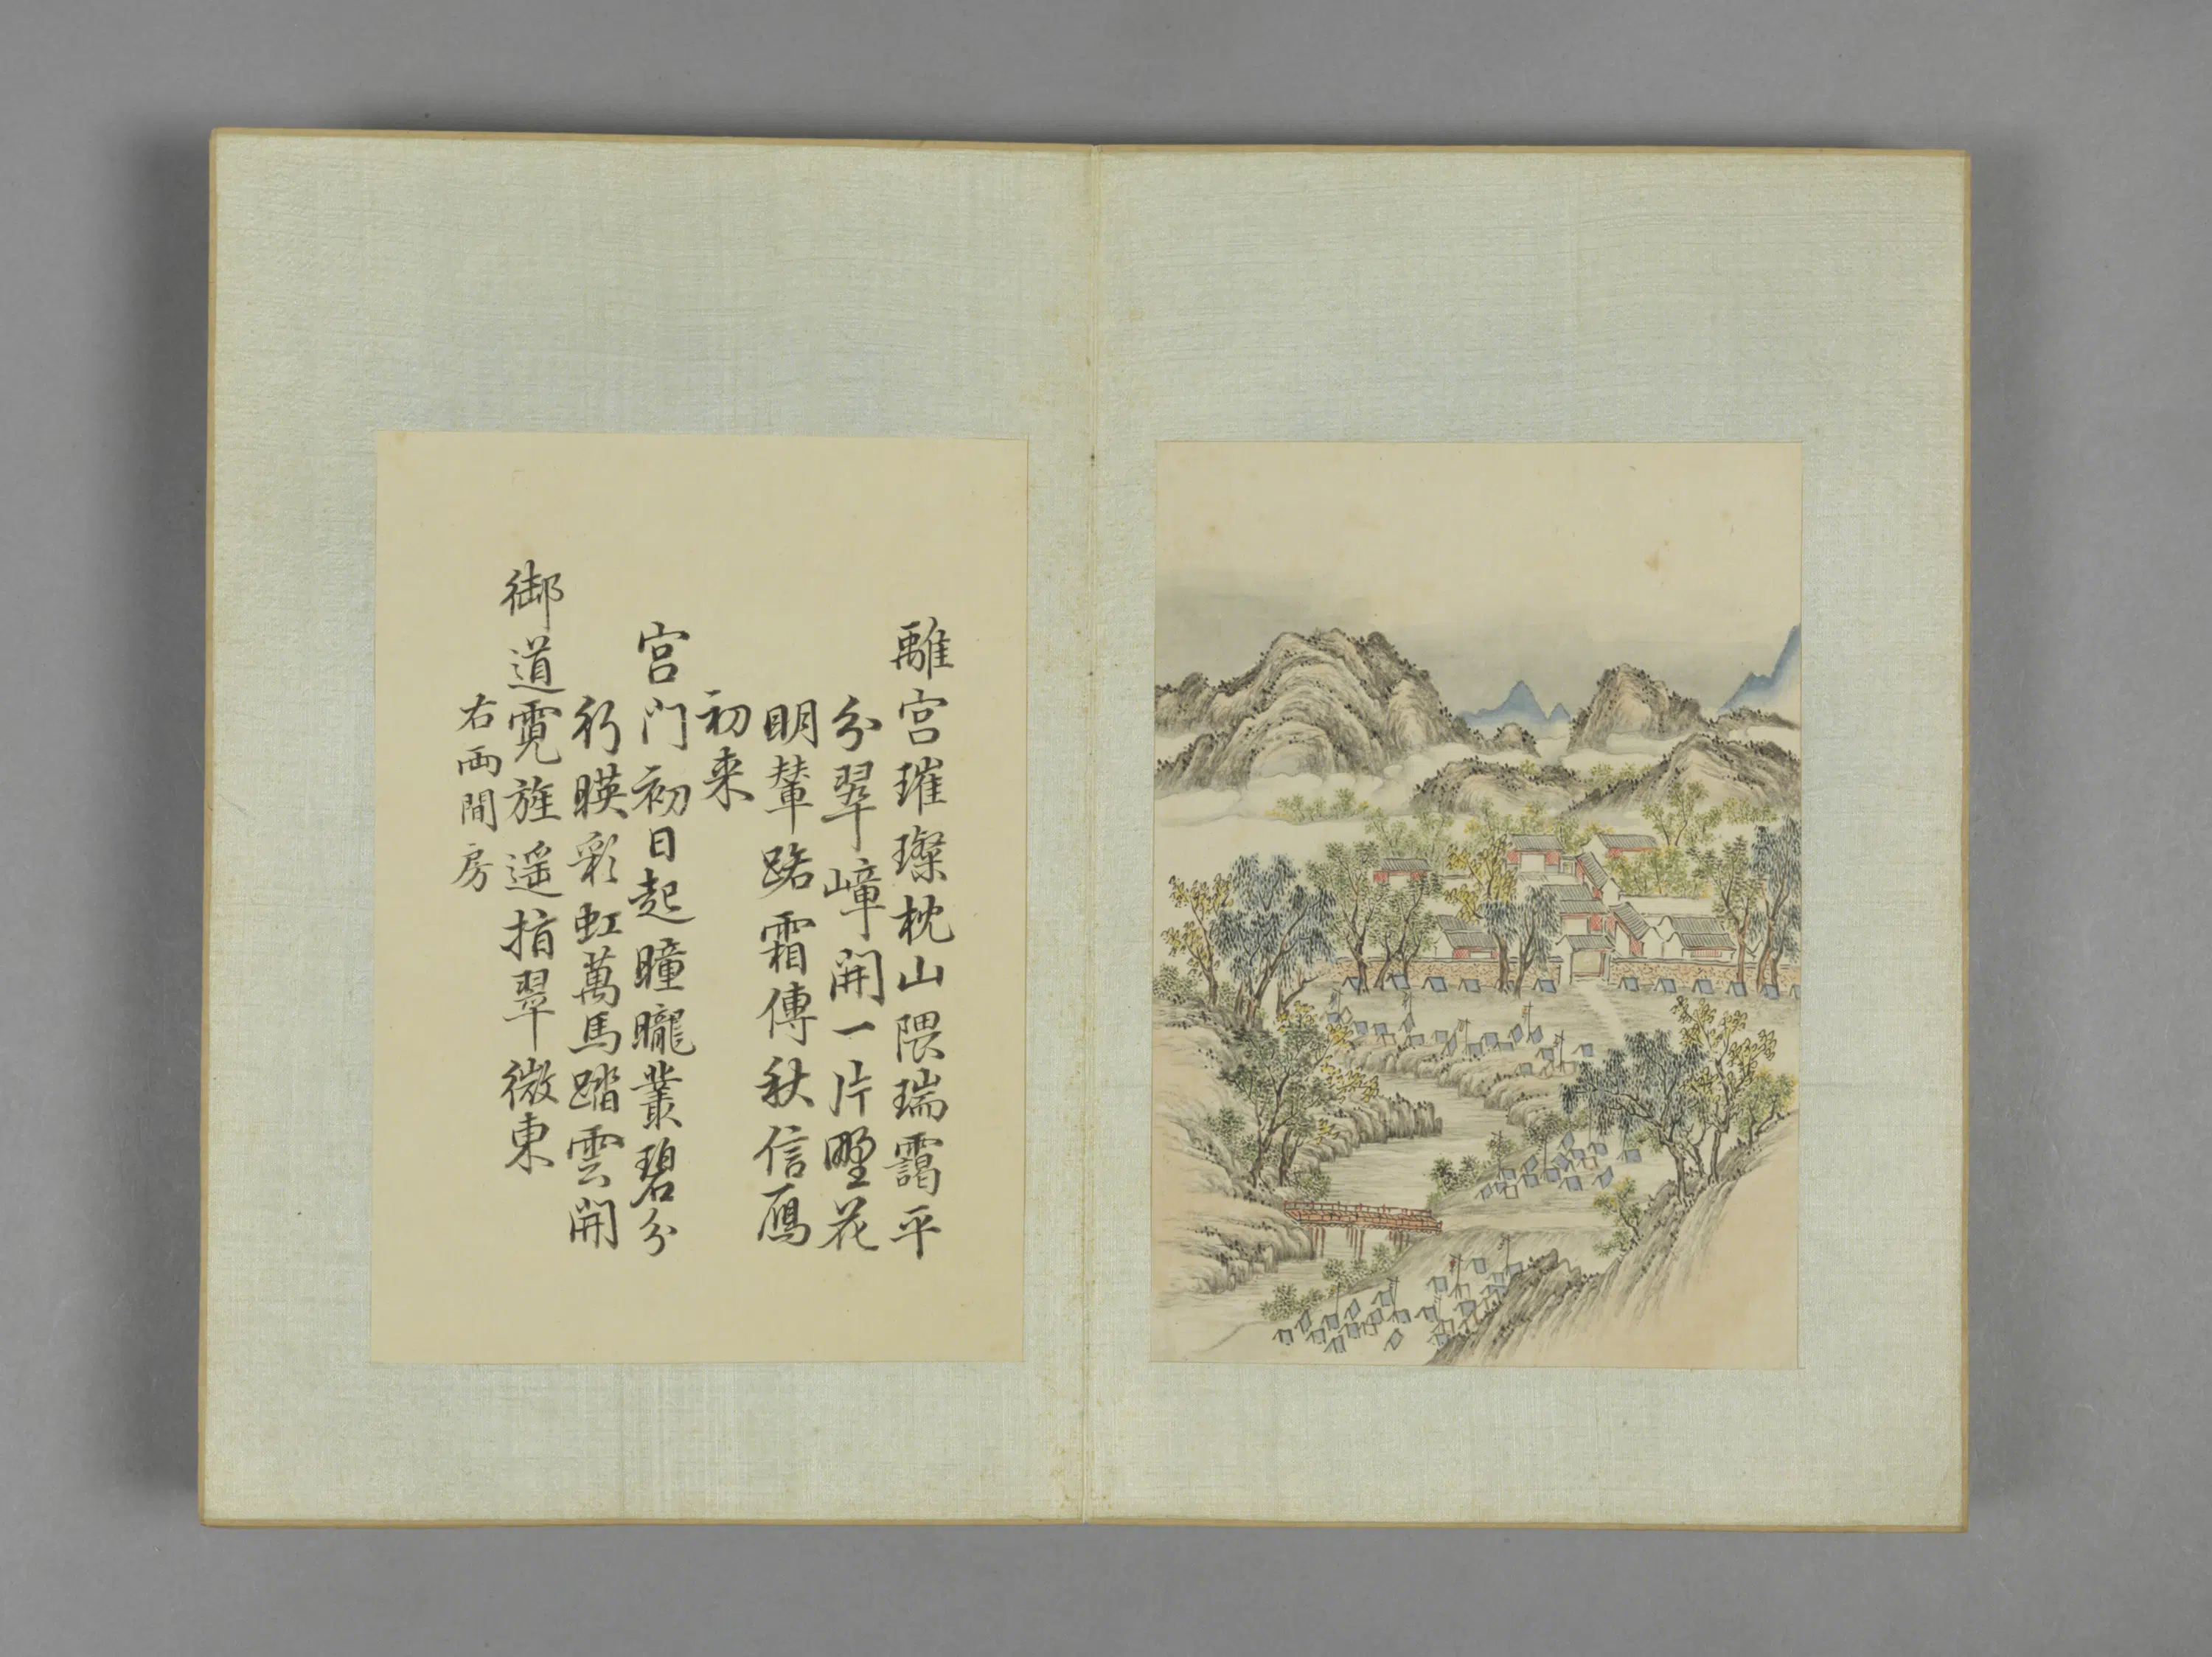 離宮璀璨枕山隈瑞靄平
分翠嶂開一片野花
明輦路霜傳秋信鴈
初来
宮門初日起曈曨叢碧分
行暎彩虹萬馬踏雲開
御道霓旌遥指翠微東
右兩間房